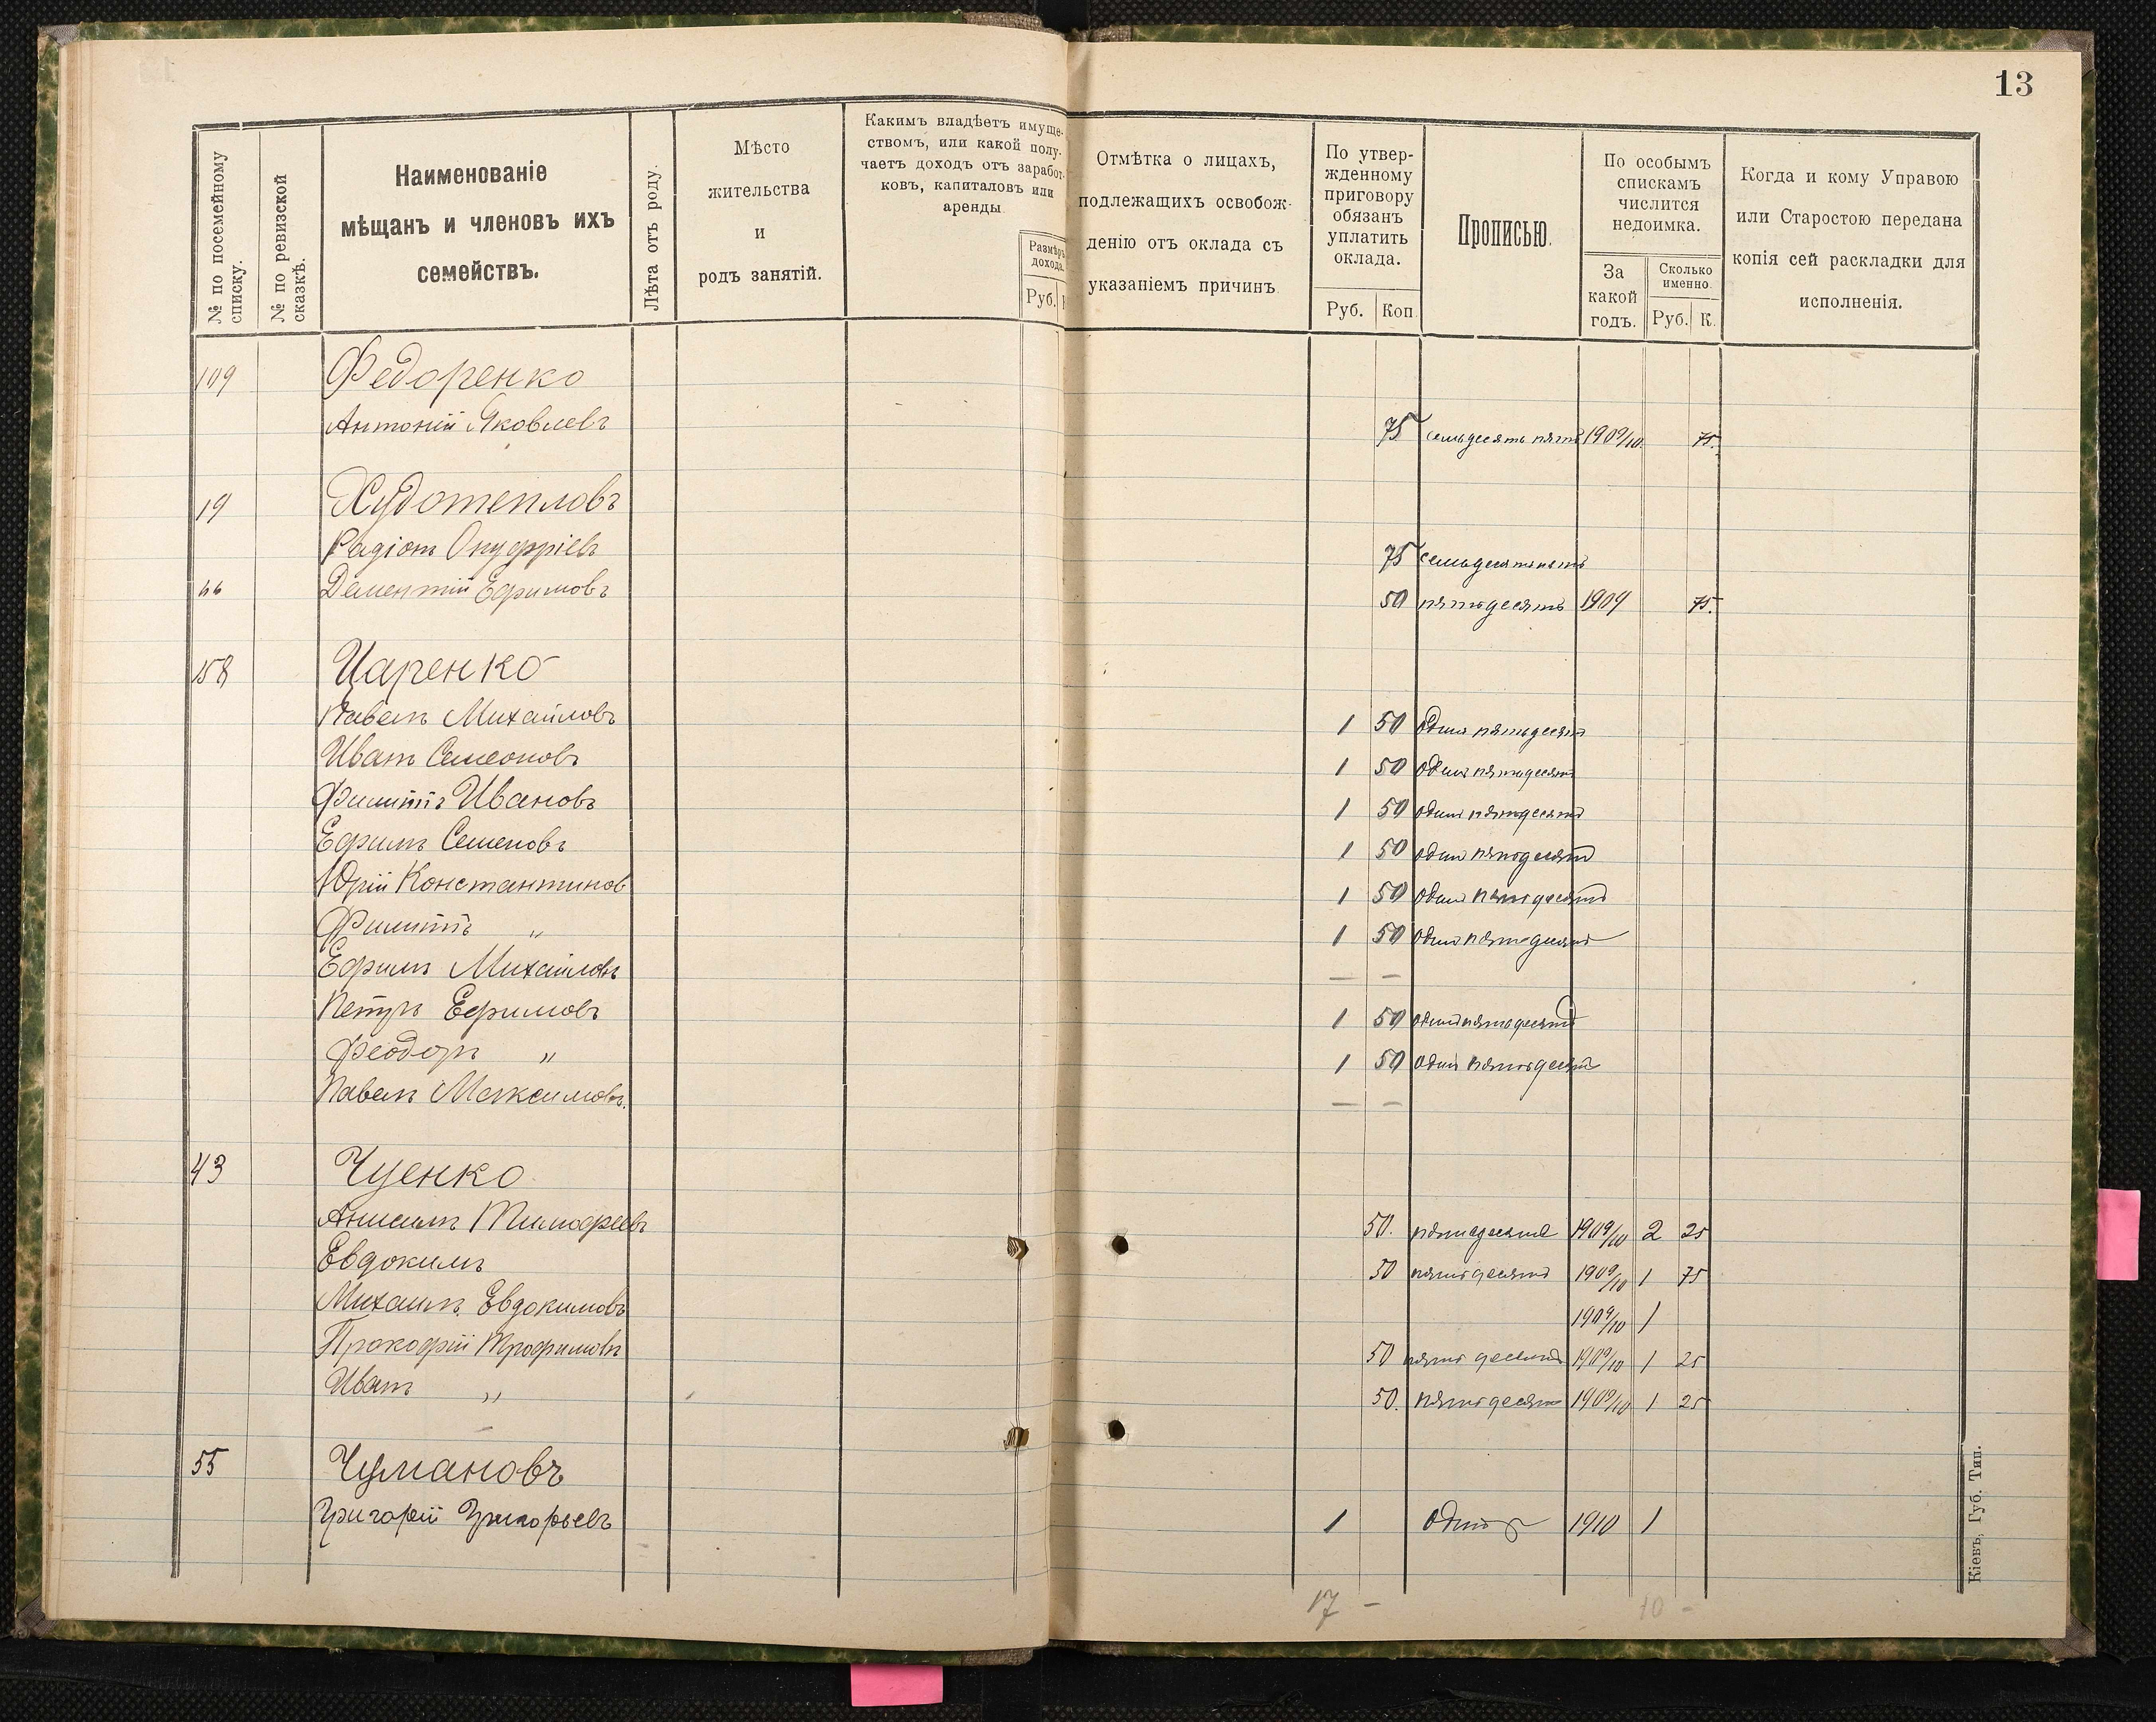 13
№ по посемейному списку.
№ по ревизской сказкѣ.
Наименованіе
мѣщанъ и членовъ ихъ
семействъ.
Лѣта отъ роду.
Мѣсто
жительства
и
родъ занятій.
Какимъ владѣетъ имуще-
ствомъ, или какой полу-
чаетъ доходъ отъ заработ-
ковъ, капиталовъ или
аренды
Размѣръ
дохода.
Руб.
Отмѣтка о лицахъ,
подлежащихъ освобож-
денію отъ оклада съ
указаніемъ причинъ
По утвер-
жденному
приговору
обязанъ
уплатить
оклада.
Руб. Коп.
Прописью.
По особымъ
спискамъ
числится
недоимка.
За
какой
годъ.
Сколько
именно.
Руб. К.
Когда и кому Управою
или Старостою передана
копія сей раскладки для
исполненія.
109 Федоренко
Антоній Яковлевъ 75 семьдесять пять 1909/10 75.
19 Худотепловъ
Радіонъ Онуфріевъ 75 семьдесятпять
66 Дементій Ефимовъ 50 пятьдесятъ 1909 75.
158 Царенко
Павелъ Михайловъ 1 50 одинъ пятьдесят
Иванъ Семеоновъ 1 50 одинъ пятьдесят
Филиппъ Ивановъ 1 50 одинъ пятьдесятъ
Ефимъ Семеновъ 1 50 один пятьдесятъ
Юрій Константинов 1 50 один пятьдесятъ
Филиппъ " 1 50 один пятьдесятъ
Ефимъ Михайловъ — —
Петръ Ефимовъ 1 50 один пятьдесятъ
Феодоръ " 1 50 один пятьдесят
Павелъ Максимовъ. — —
43 Чуенко
Анисимъ Тимофеевъ 50. пятьдесятъ 1909/10 2 25
Евдокимъ 50 пятьдесятъ 1909/10 1 75
Михаилъ Евдокимовъ 1909/10 1
Прокофій Трофимовъ 50 пять десятъ 1909/10 1 25
Иванъ " 50. пятьдесят 1909/10 1 25
55 Чумановъ
Григорій Григорьевъ 1 один 1910 1
17 - 10 -
Кіевъ, Губ. Тип.